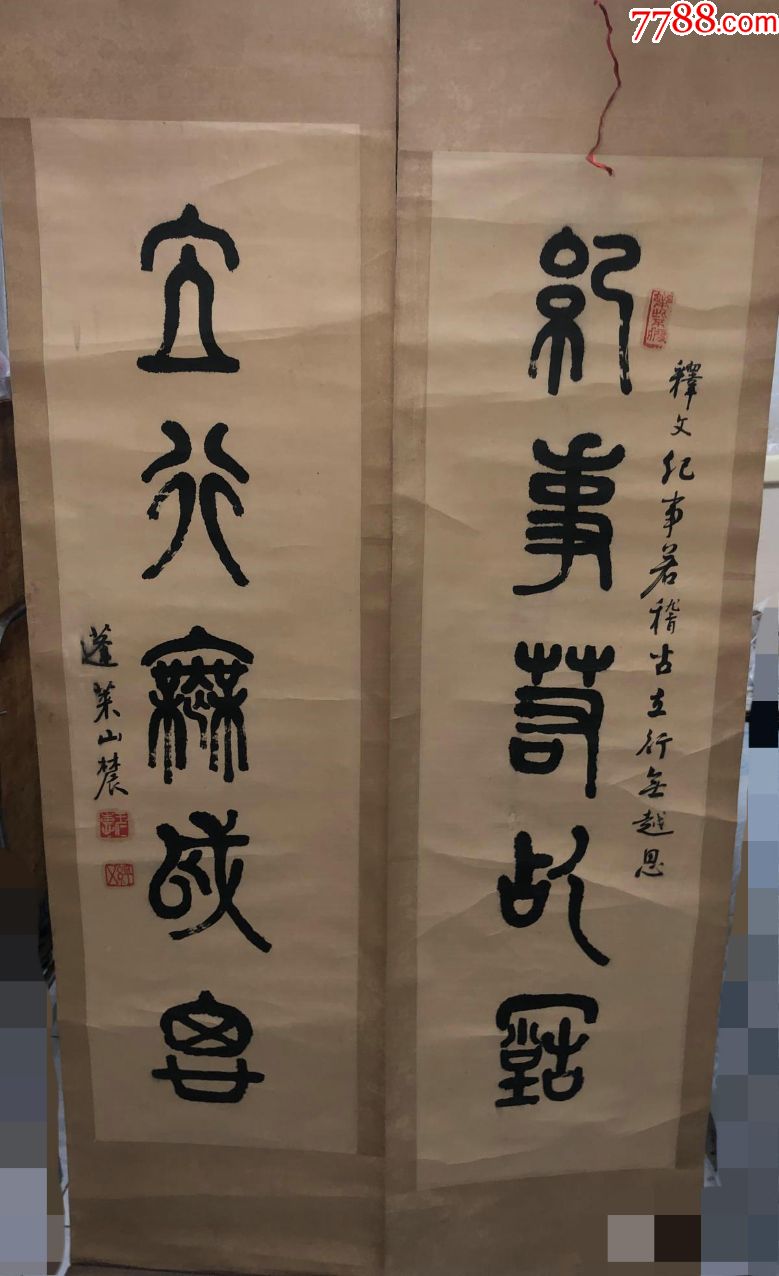 7788.com
紀事若稽古
釋文 紀事若稽古立行無越思
立行無越思
蓬萊山麓